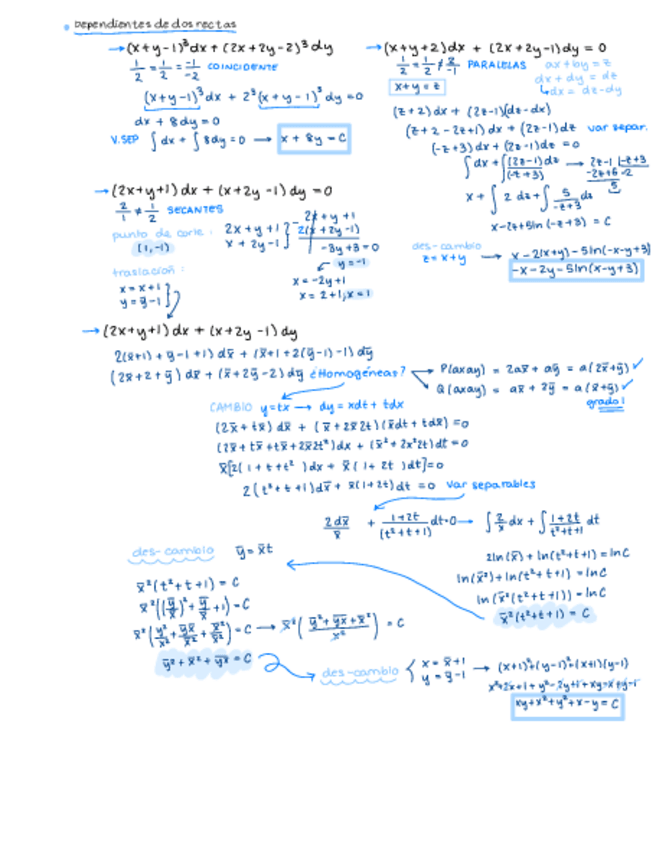 • Dependientes de dos rectas
→ (x+y-1)³dx + (2x+2y-2)³dy
1/2 = 1/2 = -1/-2 COINCIDENTE
(x+y-1)³dx + 2³(x+y-1)³dy = 0
dx + 8dy = 0
V.SEP ∫dx + ∫8dy = 0 → x + 8y = C
→ (x+y+2)dx + (2x+2y-1)dy = 0
1/2 = 1/2 ≠ 2/-1 PARALELAS
ax+by = z
x+y = z
dx + dy = dz
↳ dx = dz-dy
(z+2)dx + (2z-1)(dz-dx)
(z+2-2z+1)dx + (2z-1)dz var separ.
(-z+3)dx + (2z-1)dz = 0
∫dx + ∫(2z-1)dz/(-z+3) → 2z-1 |-z+3
-2z+6 -2
5
x + ∫2dz + ∫5/(-z+3) dz
x-2z+5ln(-z+3) = C
des-cambio
z = x+y → x-2(x+y)-5ln(-x-y+3)
-x-2y-5ln(x-y+3)
→ (2x+y+1)dx + (x+2y-1)dy = 0
2/1 ≠ 1/2 SECANTES
punto de corte:
(1,-1)
2x+y+1
x+2y-1
2x+y+1
2(x+2y-1)
-3y+3=0
y=-1
x=-2y+1
x=2+1; x=1
traslación:
x = x+1
y = y̅-1
→ (2x+y+1)dx + (x+2y-1)dy
2(x̅+1) + y̅-1+1) dx̅ + (x̅+1+2(y̅-1)-1)dy̅
(2x̅+2+y̅)dx̅ + (x̅+2y̅-2)dy̅ ¿Homogéneas?
P(ax,ay) = 2ax̅+ay̅ = a(2x̅+y̅) ✓
Q(ax,ay) = ax̅+2y̅ = a(x̅+y̅) ✓
grado 1
CAMBIO y=tx → dy = xdt + tdx
(2x̅+tx̅)dx̅ + (x̅+2x̅2t)(x̅dt+tdx̅)=0
(2x̅+tx̅+tx̅+2x̅2t²)dx + (x̅²+2x²2t)dt=0
x̅[2(1+t+t²)dx+x̅(1+2t)dt]=0
2(t²+t+1)dx̅+x̅(1+2t)dt = 0 var separables
2dx̅/x̅ + 1+2t/(t²+t+1) dt=0 → ∫2/x̅ dx + ∫1+2t/t²+t+1 dt
2ln(x̅)+ln(t²+t+1)=lnC
ln(x̅²)+ln(t²+t+1)=lnC
ln(x̅²(t²+t+1))=lnC
x̅²(t²+t+1) = C
des-cambio y̅ = x̅t
x̅²(t²+t+1) = C
x̅²((y̅/x̅)²+y̅/x̅+1)=C
x̅²(y̅²/x̅²+y̅x̅/x̅²+x̅²/x̅²)=C → x̅²(y̅²+y̅x̅+x̅²/x̅²) = C
y̅²+x̅²+y̅x̅=C
des-cambio { x = x̅+1
y = y̅-1 → (x+1)²+(y-1)²+(x+1)(y-1)
x²+2x+1+y²-2y+1+xy-x+y-1
xy+x²+y²+x-y=C